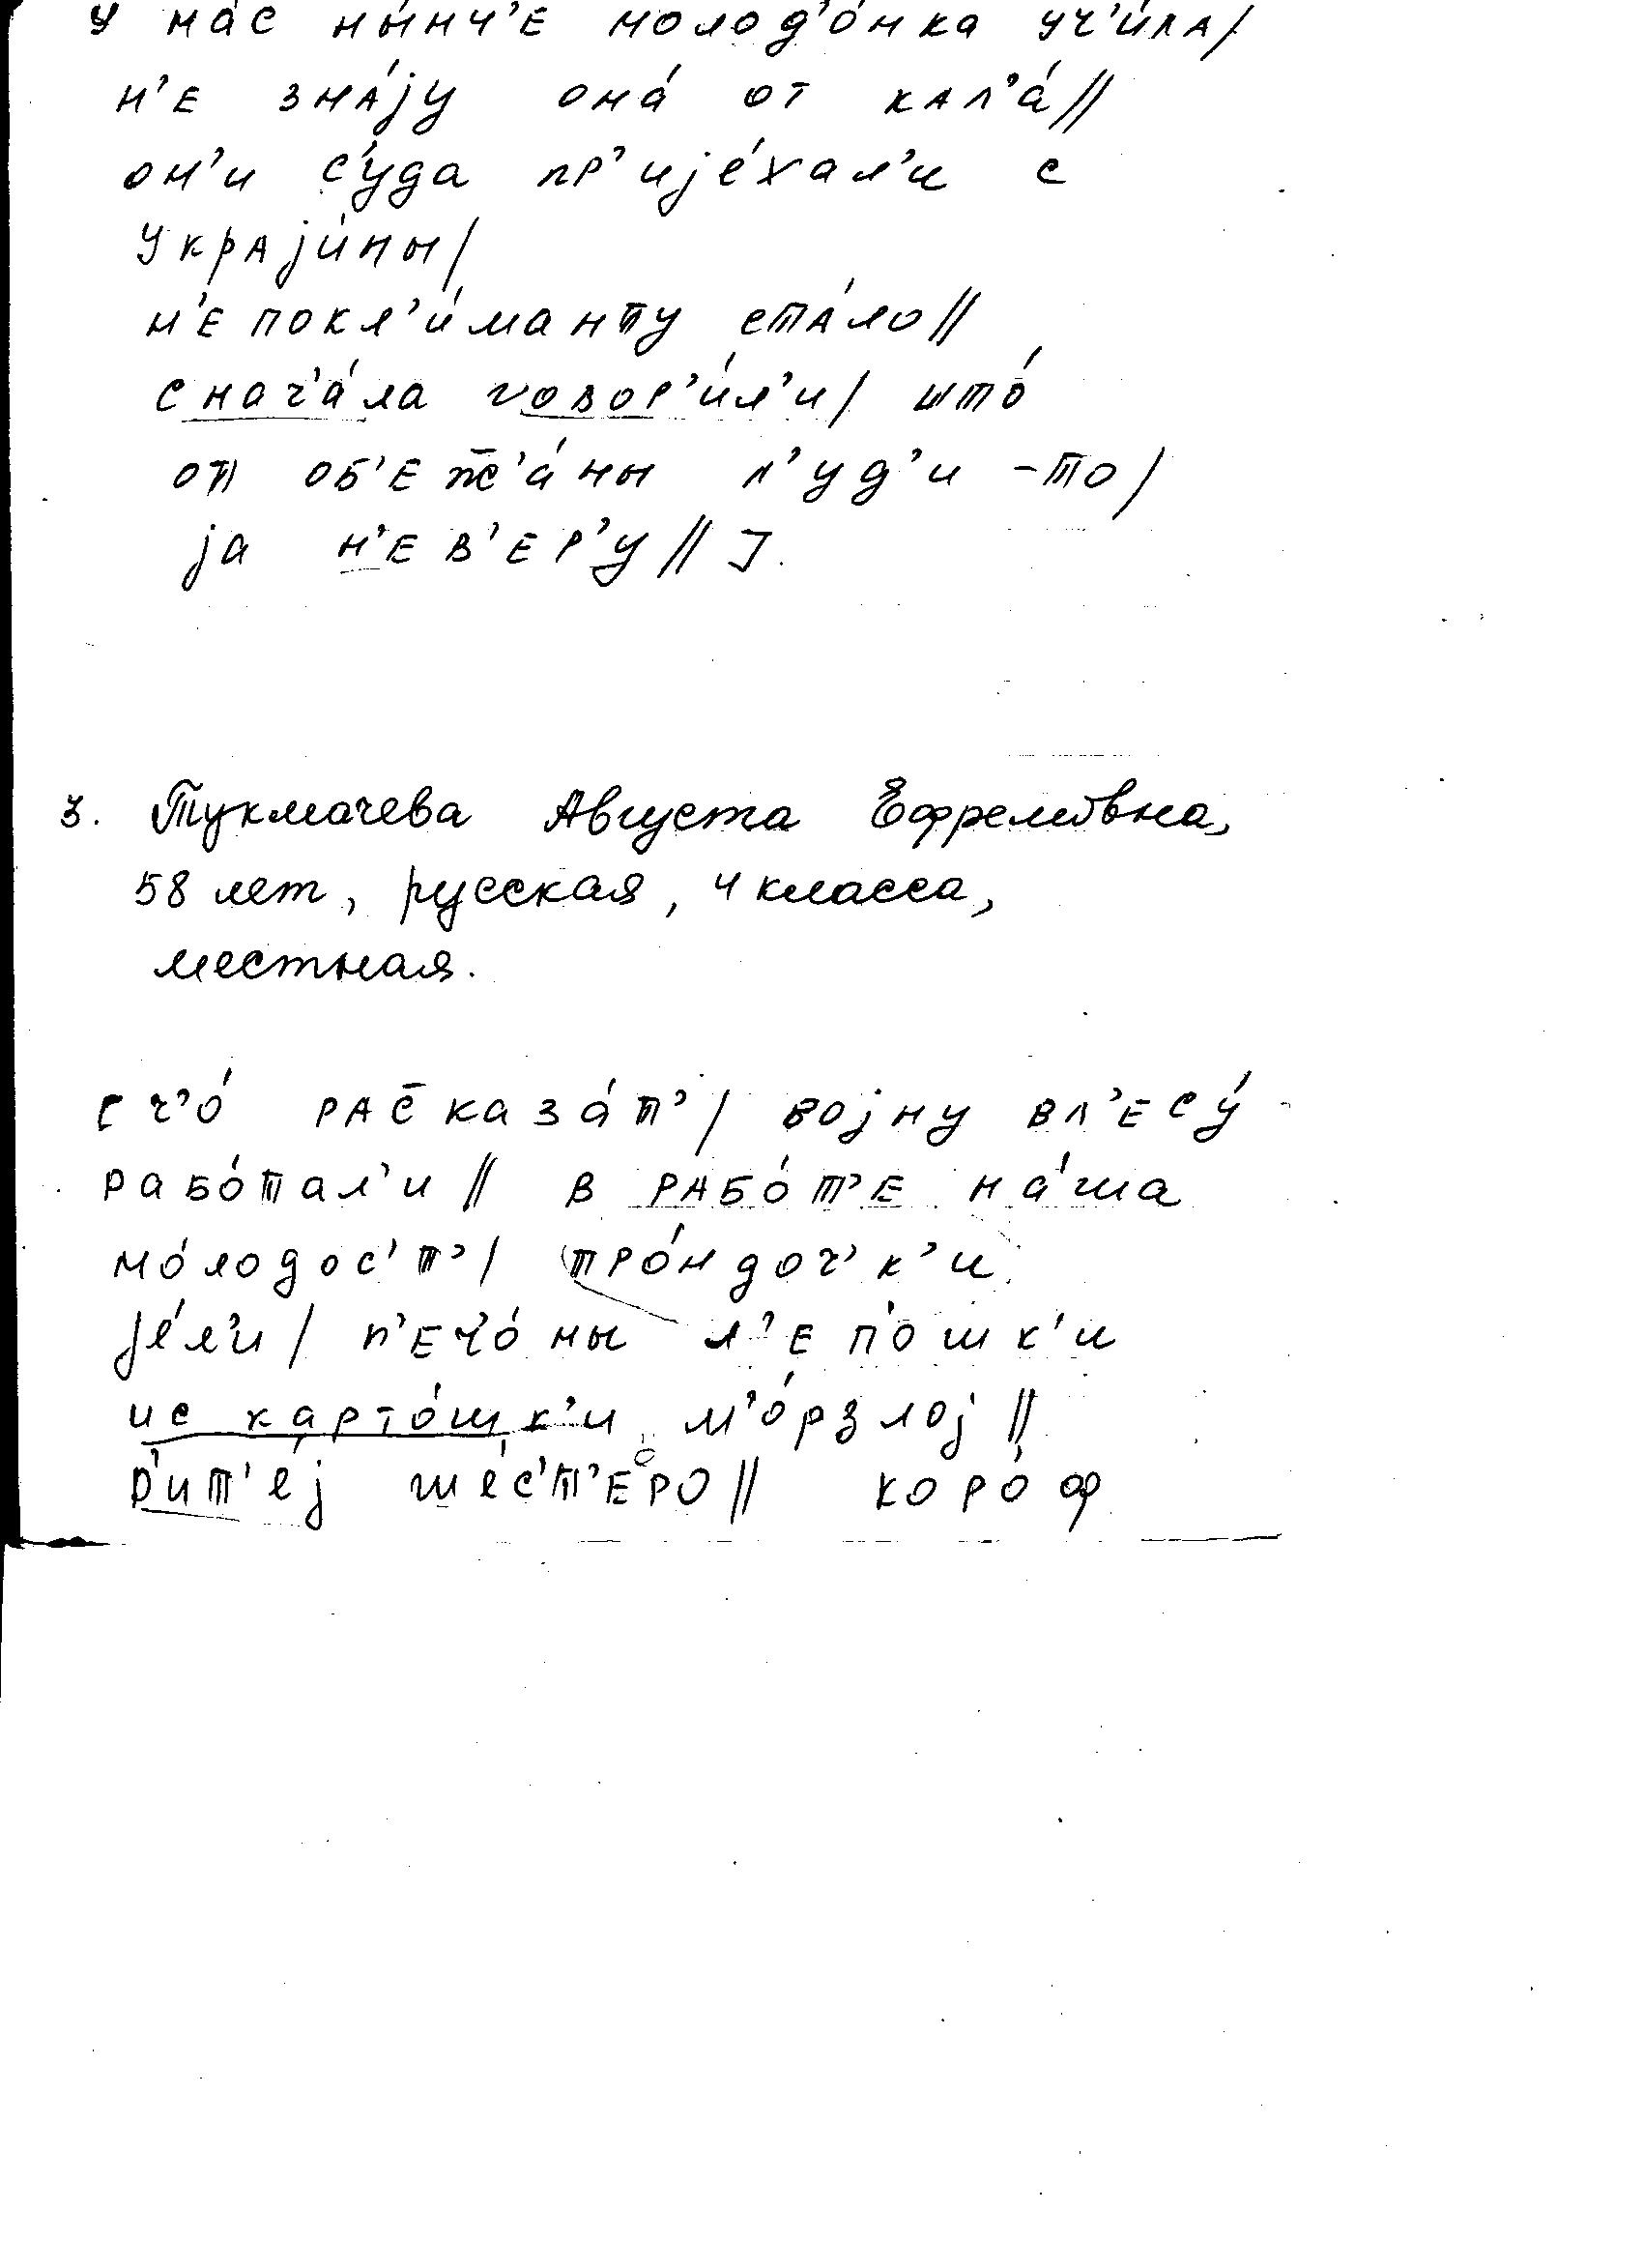 у на́с ны́нч'е молод'о́нка уч'и́ла/
н'е зна́jу она́ от кал'а́//
он'и с'уда пр'иjе́хал'и с
украjи́ны/
н'е покл'и́манту ста́ло//
снач'а́ла говор'и́л'и/ што́
от об'еж'а́ны л'уд'и -то/
jа н'е в'ер'у// ].
3. Тукмачева Августа Ефремовна,
58 лет, русская, 4 класса,
местная.
[ ч'о́ рас̄каза́т'/ воjну в л'есу́
рабо́тал'и// в рабо́т'е на́ша
мо́лодос'т'/ тро́ндоч'к'и
jе́л'и/ п'еч'о́ны л'епо́шк'и
ис карто́шк'и м'о́рзлоj//
р'ит'е́j ше́с'т'еро// коро́ф